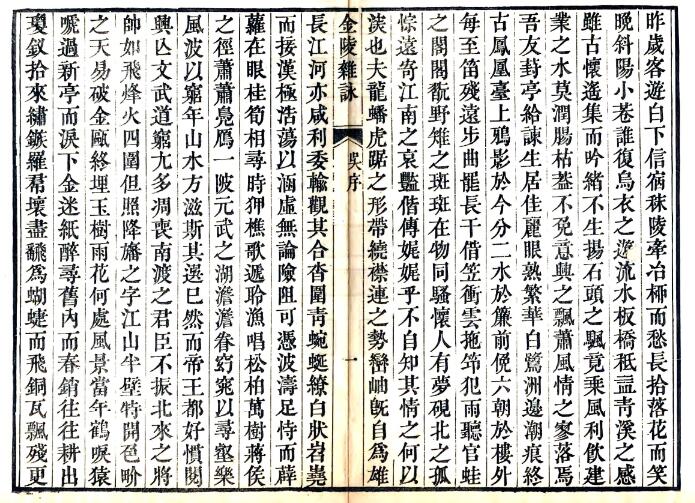 昨歲客遊白下信宿秣陵牽冶柳而愁長拾落花而笑
晚斜陽小巷誰復烏衣之遊流水板橋秪益青溪之感
雖古懷遙集而吟緒不生揚石頭之颿竟乘風利飲建
業之水莫潤腸枯蓋不免意興之飄蕭風情之寥落焉
吾友葑亭給諫生居佳麗眼熟繁華白鷺洲邊潮痕終
古鳳凰臺上鴉影於今分二水於簾前俛六朝於樓外
每至笛殘遠步曲罷長干借笠衝雲拖筇犯雨聽官蛙
之閣閣翫野雉之斑斑在物同騷懷人有夢硯北之孤
悰遠寄江南之哀豔偕傳娓娓乎不自知其情之何以
淡也夫龍蟠虎踞之形帶繞襟連之勢巒岫旣自爲雄
金陵雜詠
吳序
一
長江河亦咸利委輸觀其合沓圍青蜿蜒繚白狀岩嶤
而接漢極浩蕩以涵虛無論險阻可憑波濤足恃而薜
蘿在眼桂筍相尋時狎樵歌遞聆漁唱松柏萬樹蔣侯
之徑蕭蕭鳧鴈一陂元武之湖澹澹眷窈窕以尋壑樂
風波以窮年山水方滋斯其選已然而帝王都好慣閱
興亾文武道窮尤多凋喪南渡之君臣不振北來之將
帥如飛烽火四圍但照降旛之字江山半壁特開色畍
之天易破金甌終埋玉樹雨花何處風景當年鶴唳猿
嗁過新亭而淚下金迷紙醉尋舊內而春銷往往耕出
瓊釵拾來繡鏃羅帬壞盡飜爲蝴蜨而飛銅瓦飄殘更